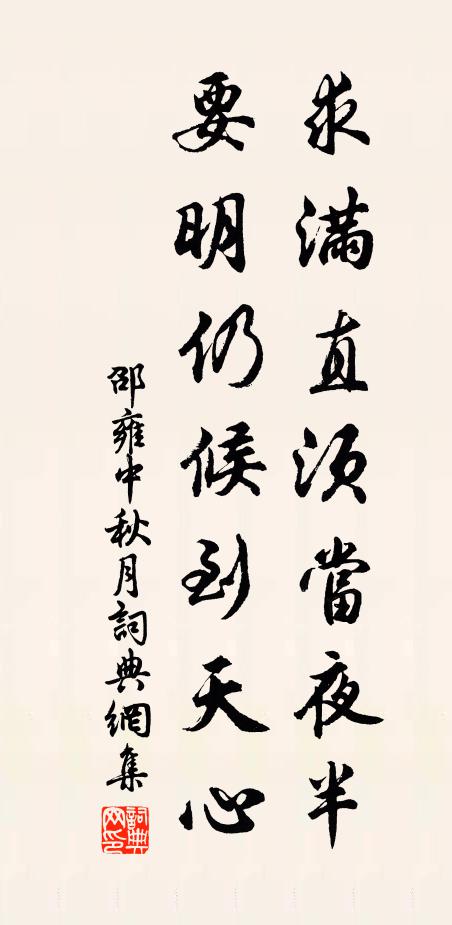 求滿直須當夜半
要明仍候到天心
邵雍中秋月詞典網集
詞典網印